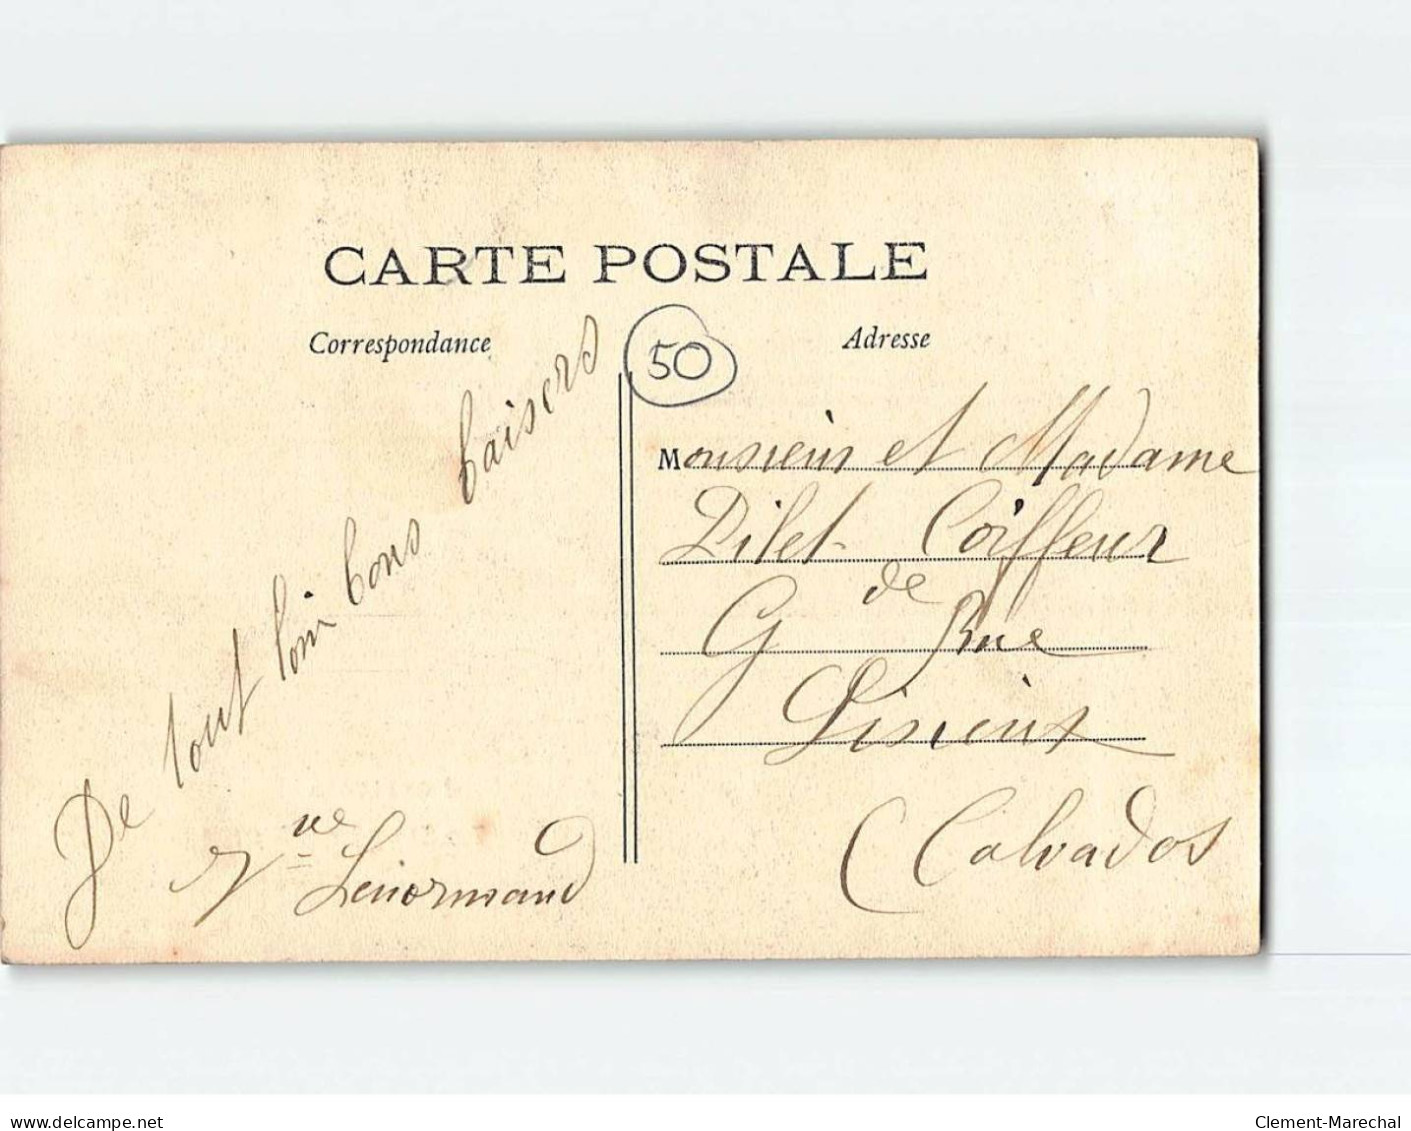 CARTE POSTALE
Correspondance
Adresse
50
De tout loin bons baisers
Vve Lenormand
Monsieur et Madame
Pilet Coiffeur
Gde Rue
Lisieux
(Calvados
www.delcampe.net
Clement-Marechal